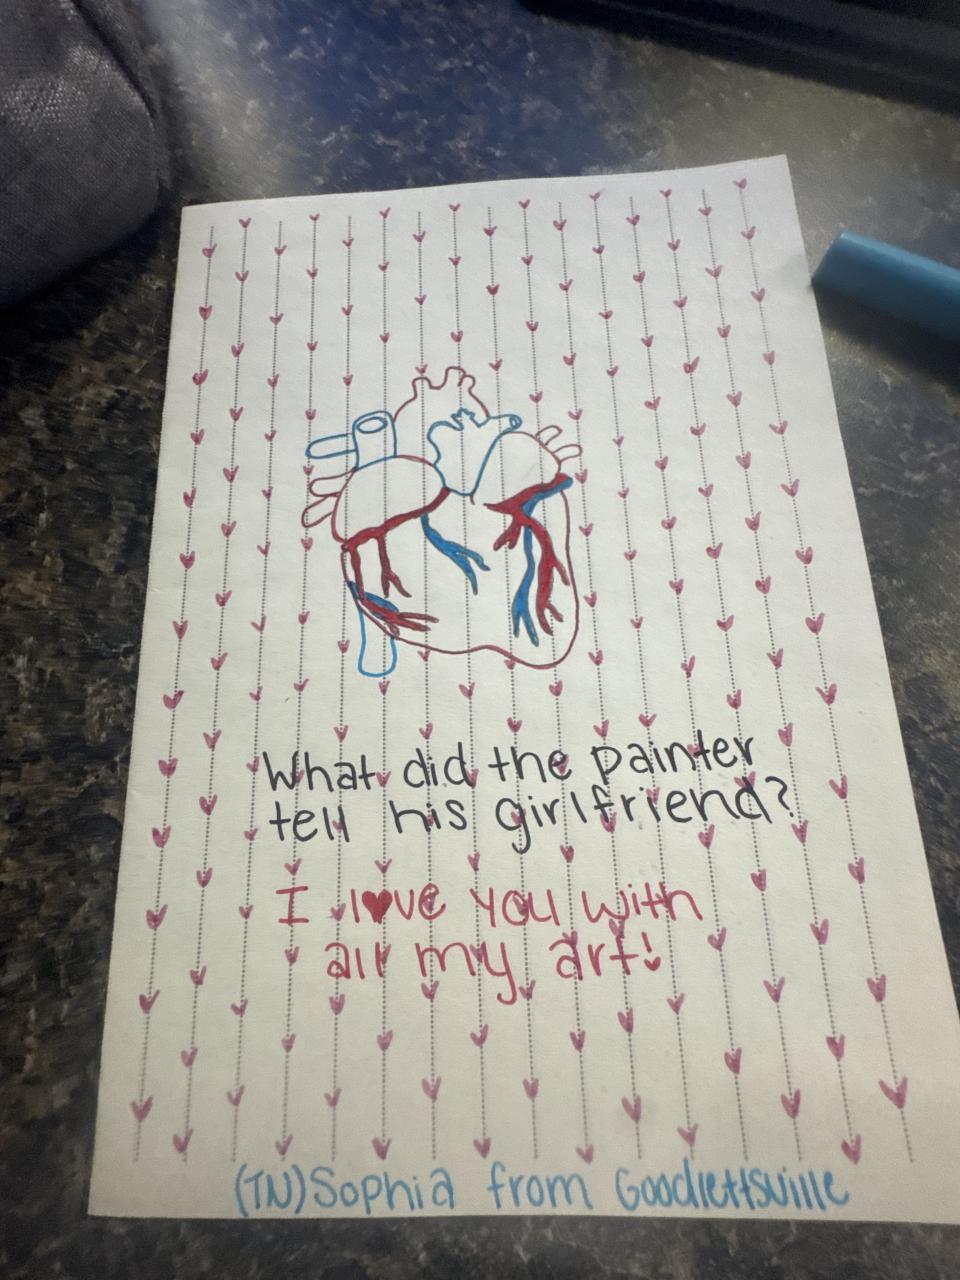 What did the painter
tell his girlfriend?
I l♥ve you with
all my art!
(TN)Sophia from Goodlettsville